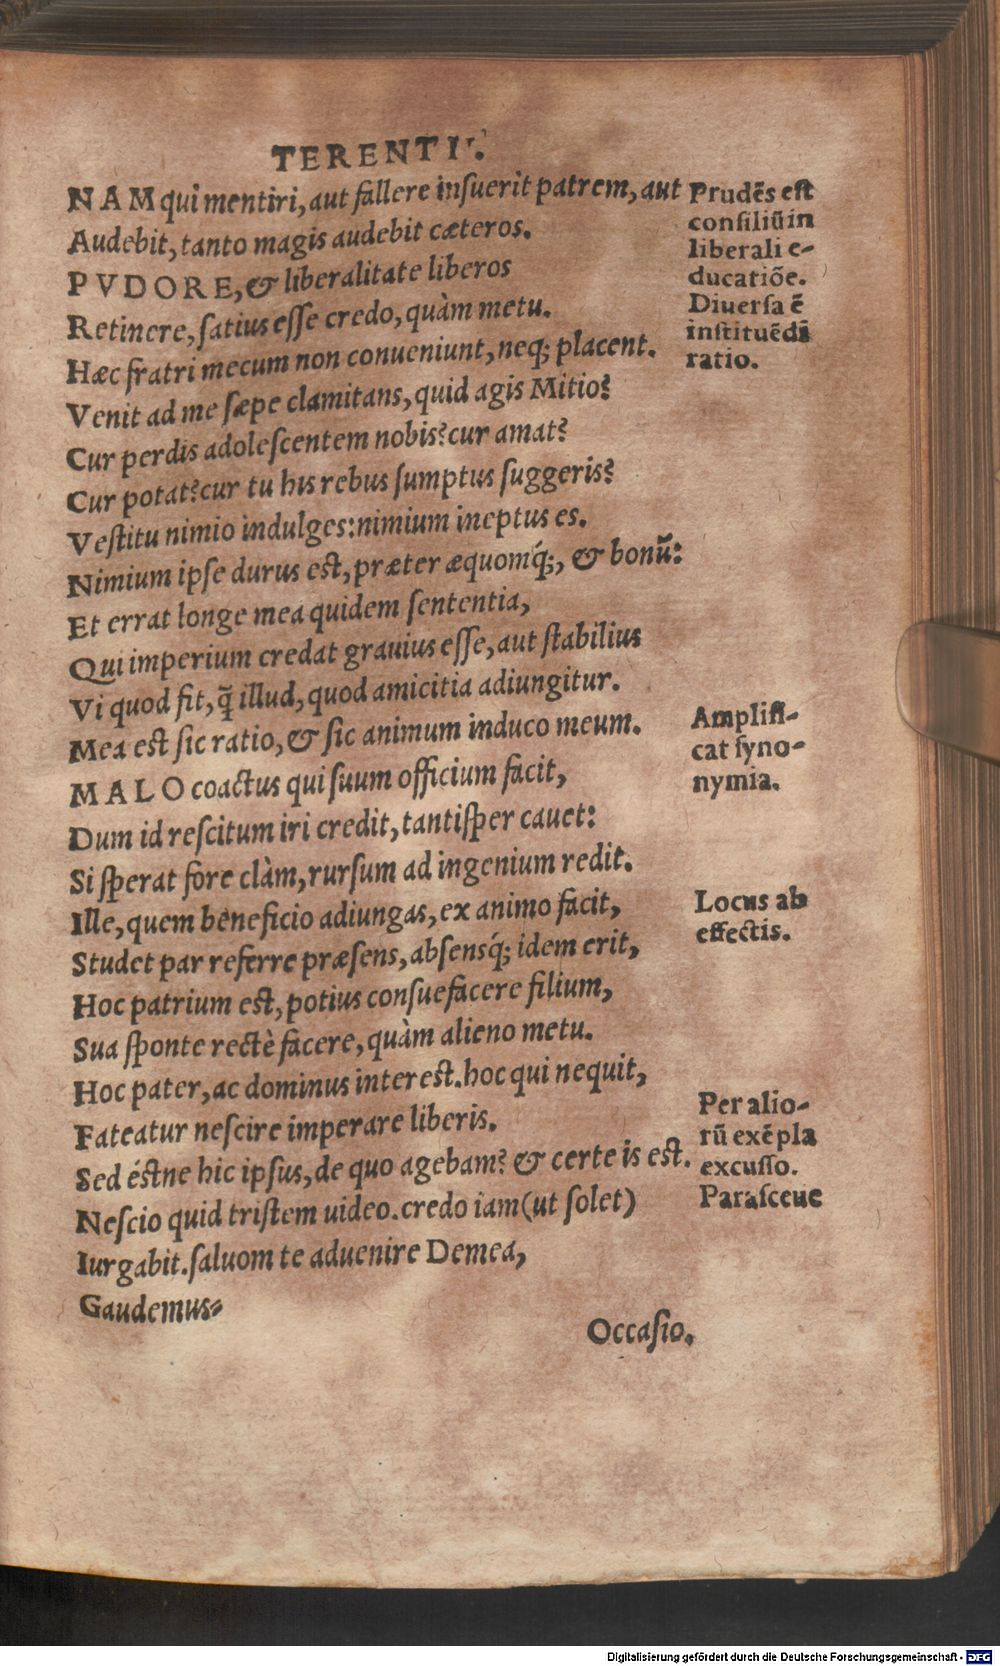 TERENTII.
NAM qui mentiri, aut fallere insuerit patrem, aut
Audebit, tanto magis audebit cæteros.
PVDORE, & liberalitate liberos
Retinere, ſatius eſſe credo, quàm metu.
Hæc fratri mecum non conueniunt, neq; placent.
Venit ad me ſæpe clamitans, quid agis Mitio?
Cur perdis adoleſcentem nobis? cur amat?
Cur potat? cur tu his rebus ſumptus ſuggeris?
Veſtitu nimio indulges: nimium ineptus es.
Nimium ipſe durus eſt, præter æquomq́;, & bonũ:
Et errat longe mea quidem ſententia,
Qui imperium credat grauius eſſe, aut ſtabilius
Vi quod fit, q̃ illud, quod amicitia adiungitur.
Mea est ſic ratio, & ſic animum induco meum.
MALO coactus qui ſuum officium facit,
Dum id reſcitum iri credit, tantiſper cauet:
Si ſperat fore clàm, rurſum ad ingenium redit.
Ille, quem beneficio adiungas, ex animo facit,
Studet par referre præſens, abſensq́; idem erit,
Hoc patrium est, potius conſuefacere filium,
Sua ſponte rectè facere, quàm alieno metu.
Hoc pater, ac dominus interest. hoc qui nequit,
Fateatur neſcire imperare liberis.
Sed éſtne hic ipſus, de quo agebam? & certe is est.
Neſcio quid triſtem uideo. credo iam (ut ſolet)
Iurgabit. ſaluom te aduenire Demea,
Gaudemus-
Occaſio.
Prudẽs eſt
conſiliũ in
liberali e-
ducatiõe.
Diuerſa ẽ
inſtituẽdi
ratio.
Amplifi-
cat ſyno-
nymia.
Locus ab
effectis.
Per alio-
rũ exẽpla
excuſſo.
Paraſceue
Digitalisierung gefördert durch die Deutsche Forschungsgemeinschaft - DFG